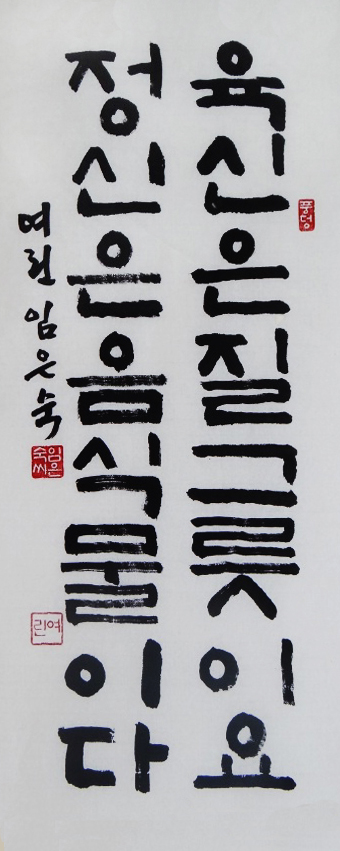 풍덩
육신은질그릇이요
정신은음식물이다
여린 임은숙
임은숙씨
여린